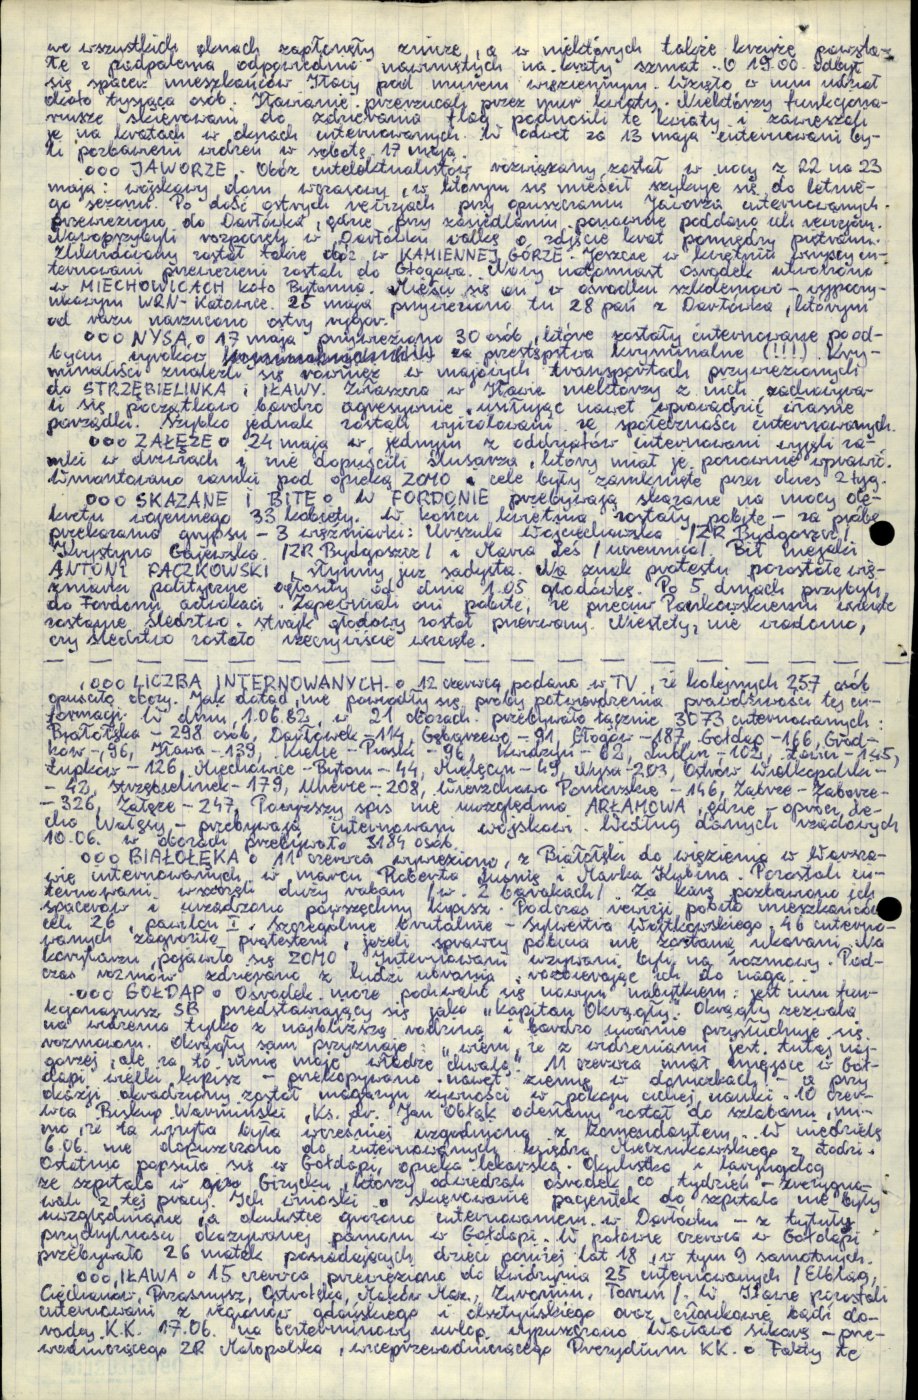 we wszystkich oknach zapłonęły znicze, a w niektórych także krzyże powsta-
łe z podpalenia odpowiednio nawiniętych na kraty szmat. O 19.00 odbył
się spacer mieszkańców Iławy pod murem więziennym. Wzięło w nim udział
około tysiąca osób. Iławianie przerzucali przez mur kwiaty. Niektórzy funkcjona-
riusze skierowani do zdzierania flag podnosili te kwiaty i zawieszali
je na kratach w oknach internowanych. W odwet za 13 maja internowani by-
li pozbawieni widzeń w sobotę 17 maja.
ooo JAWORZE. Obóz intelektualistów rozwiązany został w nocy z 22 na 23
maja: wojskowy dom wczasowy, w którym się mieścił szykuje się do letnie-
go sezonu. Po dość ostrych rewizjach przy opuszczaniu Jaworza internowanych
przewieziono do Darłówka, gdzie przy zasiedlaniu ponownie poddano ich rewizjom.
Nowoprzybyli rozpoczęli w Darłówku walkę o zdjęcie krat pomiędzy piętrami.
Zlikwidowany został także obóz w KAMIENNEJ GÓRZE. Jeszcze w kwietniu wszyscy in-
ternowani przewiezieni zostali do Głogowa. Nowy natomiast ośrodek utworzono
w MIECHOWICACH koło Bytomia. Mieści się on w ośrodku szkoleniowo-wypoczyn-
kowym WRN-Katowice. 25 maja przywieziono tu 28 pań z Darłówka, którym
od razu narzucono ostry rygor.
ooo NYSA o 17 maja przywieziono 30 osób, które zostały internowane po od-
byciu wyroków za przestępstwa kryminalne (!!!). Kry-
minaliści znaleźli się również w majowych transportach przywiezionych
do STRZEBIELINKA i IŁAWY. Zwłaszcza w Iławie niektórzy z nich zachowywa-
li się początkowo bardzo agresywnie usiłując nawet wprowadzić własne
porządki. Szybko jednak zostali wyizolowani ze społeczności internowanych.
ooo ZAŁĘŻE o 24 maja w jednym z oddziałów internowani wyjęli za-
mki w drzwiach i nie dopuścili ślusarza, który miał je ponownie wprawić.
Wmontowano zamki pod opieką ZOMO a cele były zamknięte przez okres 2 tyg.
ooo SKAZANE I BITE o W FORDONIE przebywają skazane na mocy de-
kretu wojennego 33 kobiety. W końcu kwietnia zostały pobite - za próbę
przekazania grypsu - 3 więźniarki: Urszula Wojciechowska /ZR Bydgoszcz/,
Krystyna Gajewska /ZR Bydgoszcz/ i Maria Leś /uczennica/. Bił niejaki
ANTONI PACZKOWSKI, słynny już sadysta. Na znak protestu pozostałe wię-
źniarki polityczne ogłosiły od dnia 1.05 głodówkę. Po 5 dniach przybyli
do Fordonu adwokaci. Zapewniali oni pobite, że przeciw Paczkowskiemu wszczęte
zostanie śledztwo. Strajk głodowy został przerwany. Niestety, nie wiadomo,
czy śledztwo zostało rzeczywiście wszczęte.
ooo LICZBA INTERNOWANYCH. o 12 czerwca podano w TV, że kolejnych 257 osób
opuściło obozy. Jak dotąd, nie powiodły się próby potwierdzenia prawdziwości tej in-
formacji. W dniu 1.06.82, w 21 obozach przebywało łącznie 3073 internowanych:
Białołęka - 298 osób, Darłówek - 114, Gębarzewo - 91, Głogów - 187, Gołdap - 166, Gród-
ków - 96, Iława - 139, Kielce-Piaski - 96, Kwidzyń - 82, Lublin - 102, Łowicz - 145,
Łupków - 126, Miechowice-Bytom - 44, Mielęcin - 49, Nysa - 203, Ostrów Wielkopolski -
- 42, Strzebielinek - 179, Uherce - 208, Wierzchowo Pomorskie - 146, Zabrze-Zaborze -
- 326, Załęże - 247. Powyższy spis nie uwzględnia ARŁAMOWA, gdzie - oprócz Le-
cha Wałęsy - przebywają internowani wojskowi. Według danych rządowych
10.06. w obozach przebywało 3184 osób.
ooo BIAŁOŁĘKA o 11 czerwca wywieziono z Białołęki do więzienia w Warsza-
wie internowanych w marcu Roberta Luśnię i Marka Kubina. Pozostali in-
ternowani wszczęli duży raban /w 2 barakach/. Za karę pozbawiono ich
spacerów i urządzono powszechny kipisz. Podczas rewizji pobito mieszkańców
celi 26, pawilon I. Szczególnie brutalnie - Sylwestra Wojtkowskiego. 46 interno-
wanych zagroziło protestem, jeżeli sprawcy pobicia nie zostaną ukarani. Na
korytarzu pojawiło się ZOMO. Internowani wzywani byli na rozmowy. Pod-
czas rozmów zdzierano z ludzi ubrania, rozbierając ich do naga.
ooo GOŁDAP o Ośrodek może pochwalić się nowym nabytkiem: jest nim fun-
kcjonariusz SB przedstawiający się jako "Kapitan Okrągły". Okrągły zezwala
na widzenia tylko z najbliższą rodziną i bardzo uważnie przysłuchuje się
rozmowom. Okrągły sam przyznaje: "wiem, że z widzeniami jest tutaj naj-
gorzej, ale za to mnie moje władze chwalą". 11 czerwca miał miejsce w Goł-
dapi wielki kipisz - przekopywano nawet ziemię w doniczkach! - a przy
okazji okradziony został magazyn żywności w pokoju cichej nauki. 10 czer-
wca Biskup Warmiński, Ks. dr. Jan Obłąk odesłany został do szlabanu, mi-
mo, że ta wizyta była wcześniej uzgodniona z komendantem. W niedzielę
6.06. nie dopuszczono do internowanych księdza Miecznikowskiego z Łodzi.
Ostatnio popsuła się w Gołdapi, opieka lekarska. Okulistka i laryngolog
ze szpitala w Giżycku, którzy odwiedzali ośrodek co tydzień - zrezygno-
wali z tej pracy. Ich wnioski o skierowanie pacjentek do szpitala nie były
uwzględniane, a okulistce grożono internowaniem w Darłówku - z tytułu
przychylności okazywanej paniom w Gołdapi. W połowie czerwca w Gołdapi
przebywało 26 matek posiadających dzieci poniżej lat 18, w tym 9 samotnych.
ooo IŁAWA o 15 czerwca przewieziono do Kwidzynia 25 internowanych /Elbląg,
Ciechanów, Przasnysz, Ostrołęka, Maków Maz., Żuromin, Toruń/. W Iławie pozostali
internowani z regionów gdańskiego i olsztyńskiego oraz członkowie bądź do-
radcy K.K. 17.06. na bezterminowy urlop wypuszczono Wacława Sikorę - prze-
wodniczącego ZR Małopolska, wiceprzewodniczącego Prezydium KK. o Fakty te